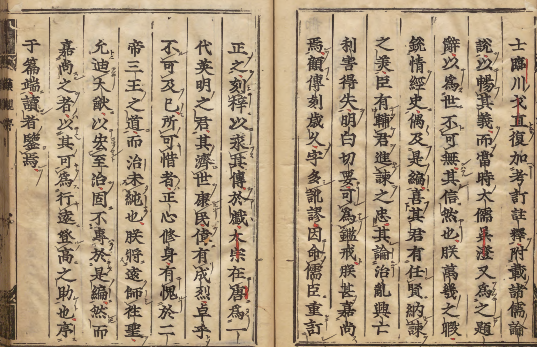 士臨川戈直復加考訂註釋附載諸儒論
說以暢其義而當時大儒吳澄又為之題
辭以為世不可無其信然也朕萬幾之暇
銳情經史偶及是編喜其君有任賢納諫
之美臣有輔君進諫之忠其論治亂興亡
利害得失明白切要可為鑑戒朕甚嘉尚
焉顧傳刻歲久字多訛謬因命儒臣重訂
正之刻梓以永其傳於戲太宗在唐為一
代英明之君其濟世康民偉有成烈卓乎
不可及已所可惜者正心修身有愧於二
帝三王之道而治未純也朕將遠師往聖
允迪大猷以宏至治固不專於是編然而
嘉尚之者以其可為行遠登高之助也序
于篇端讀者鑒焉